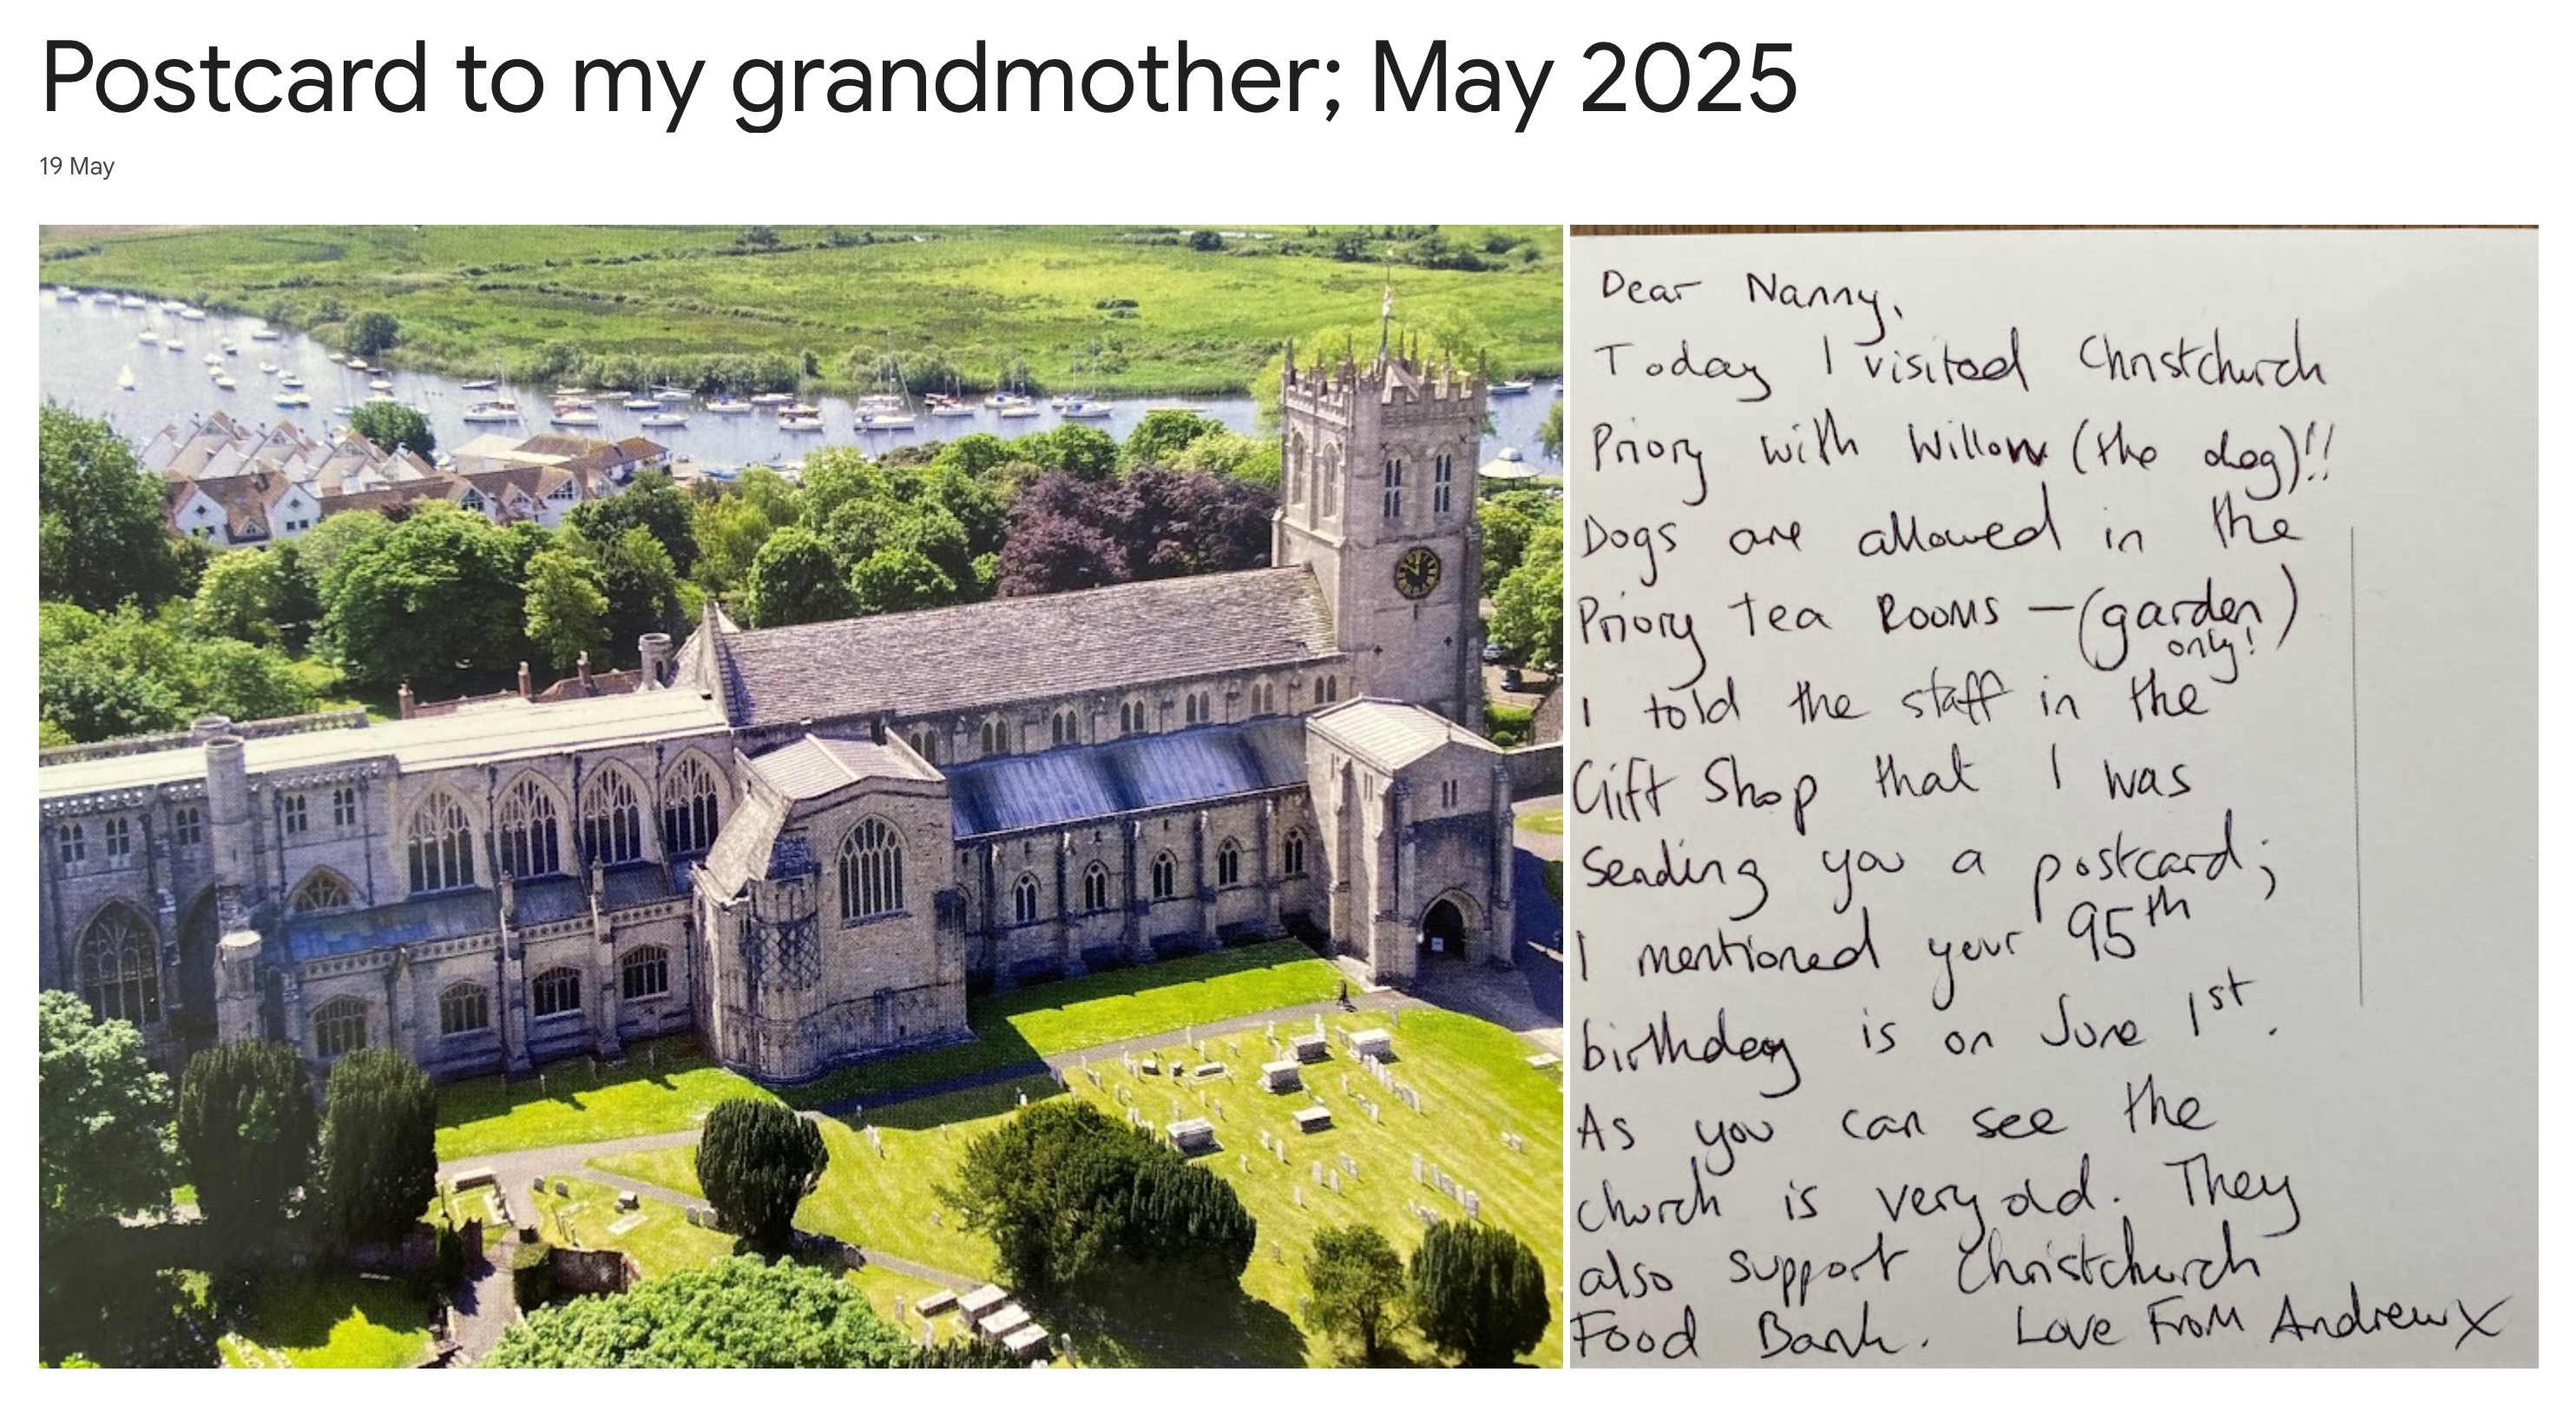 Postcard to my grandmother; May 2025
19 May
Dear Nanny,
Today I visited Christchurch
Priory with Willow (the dog)!!
Dogs are allowed in the
Priory Tea Rooms — (garden
only!)
I told the staff in the
Gift Shop that I was
sending you a postcard;
I mentioned your 95th
birthday is on June 1st.
As you can see the
church is very old. They
also support Christchurch
Food Bank. Love From Andrew X